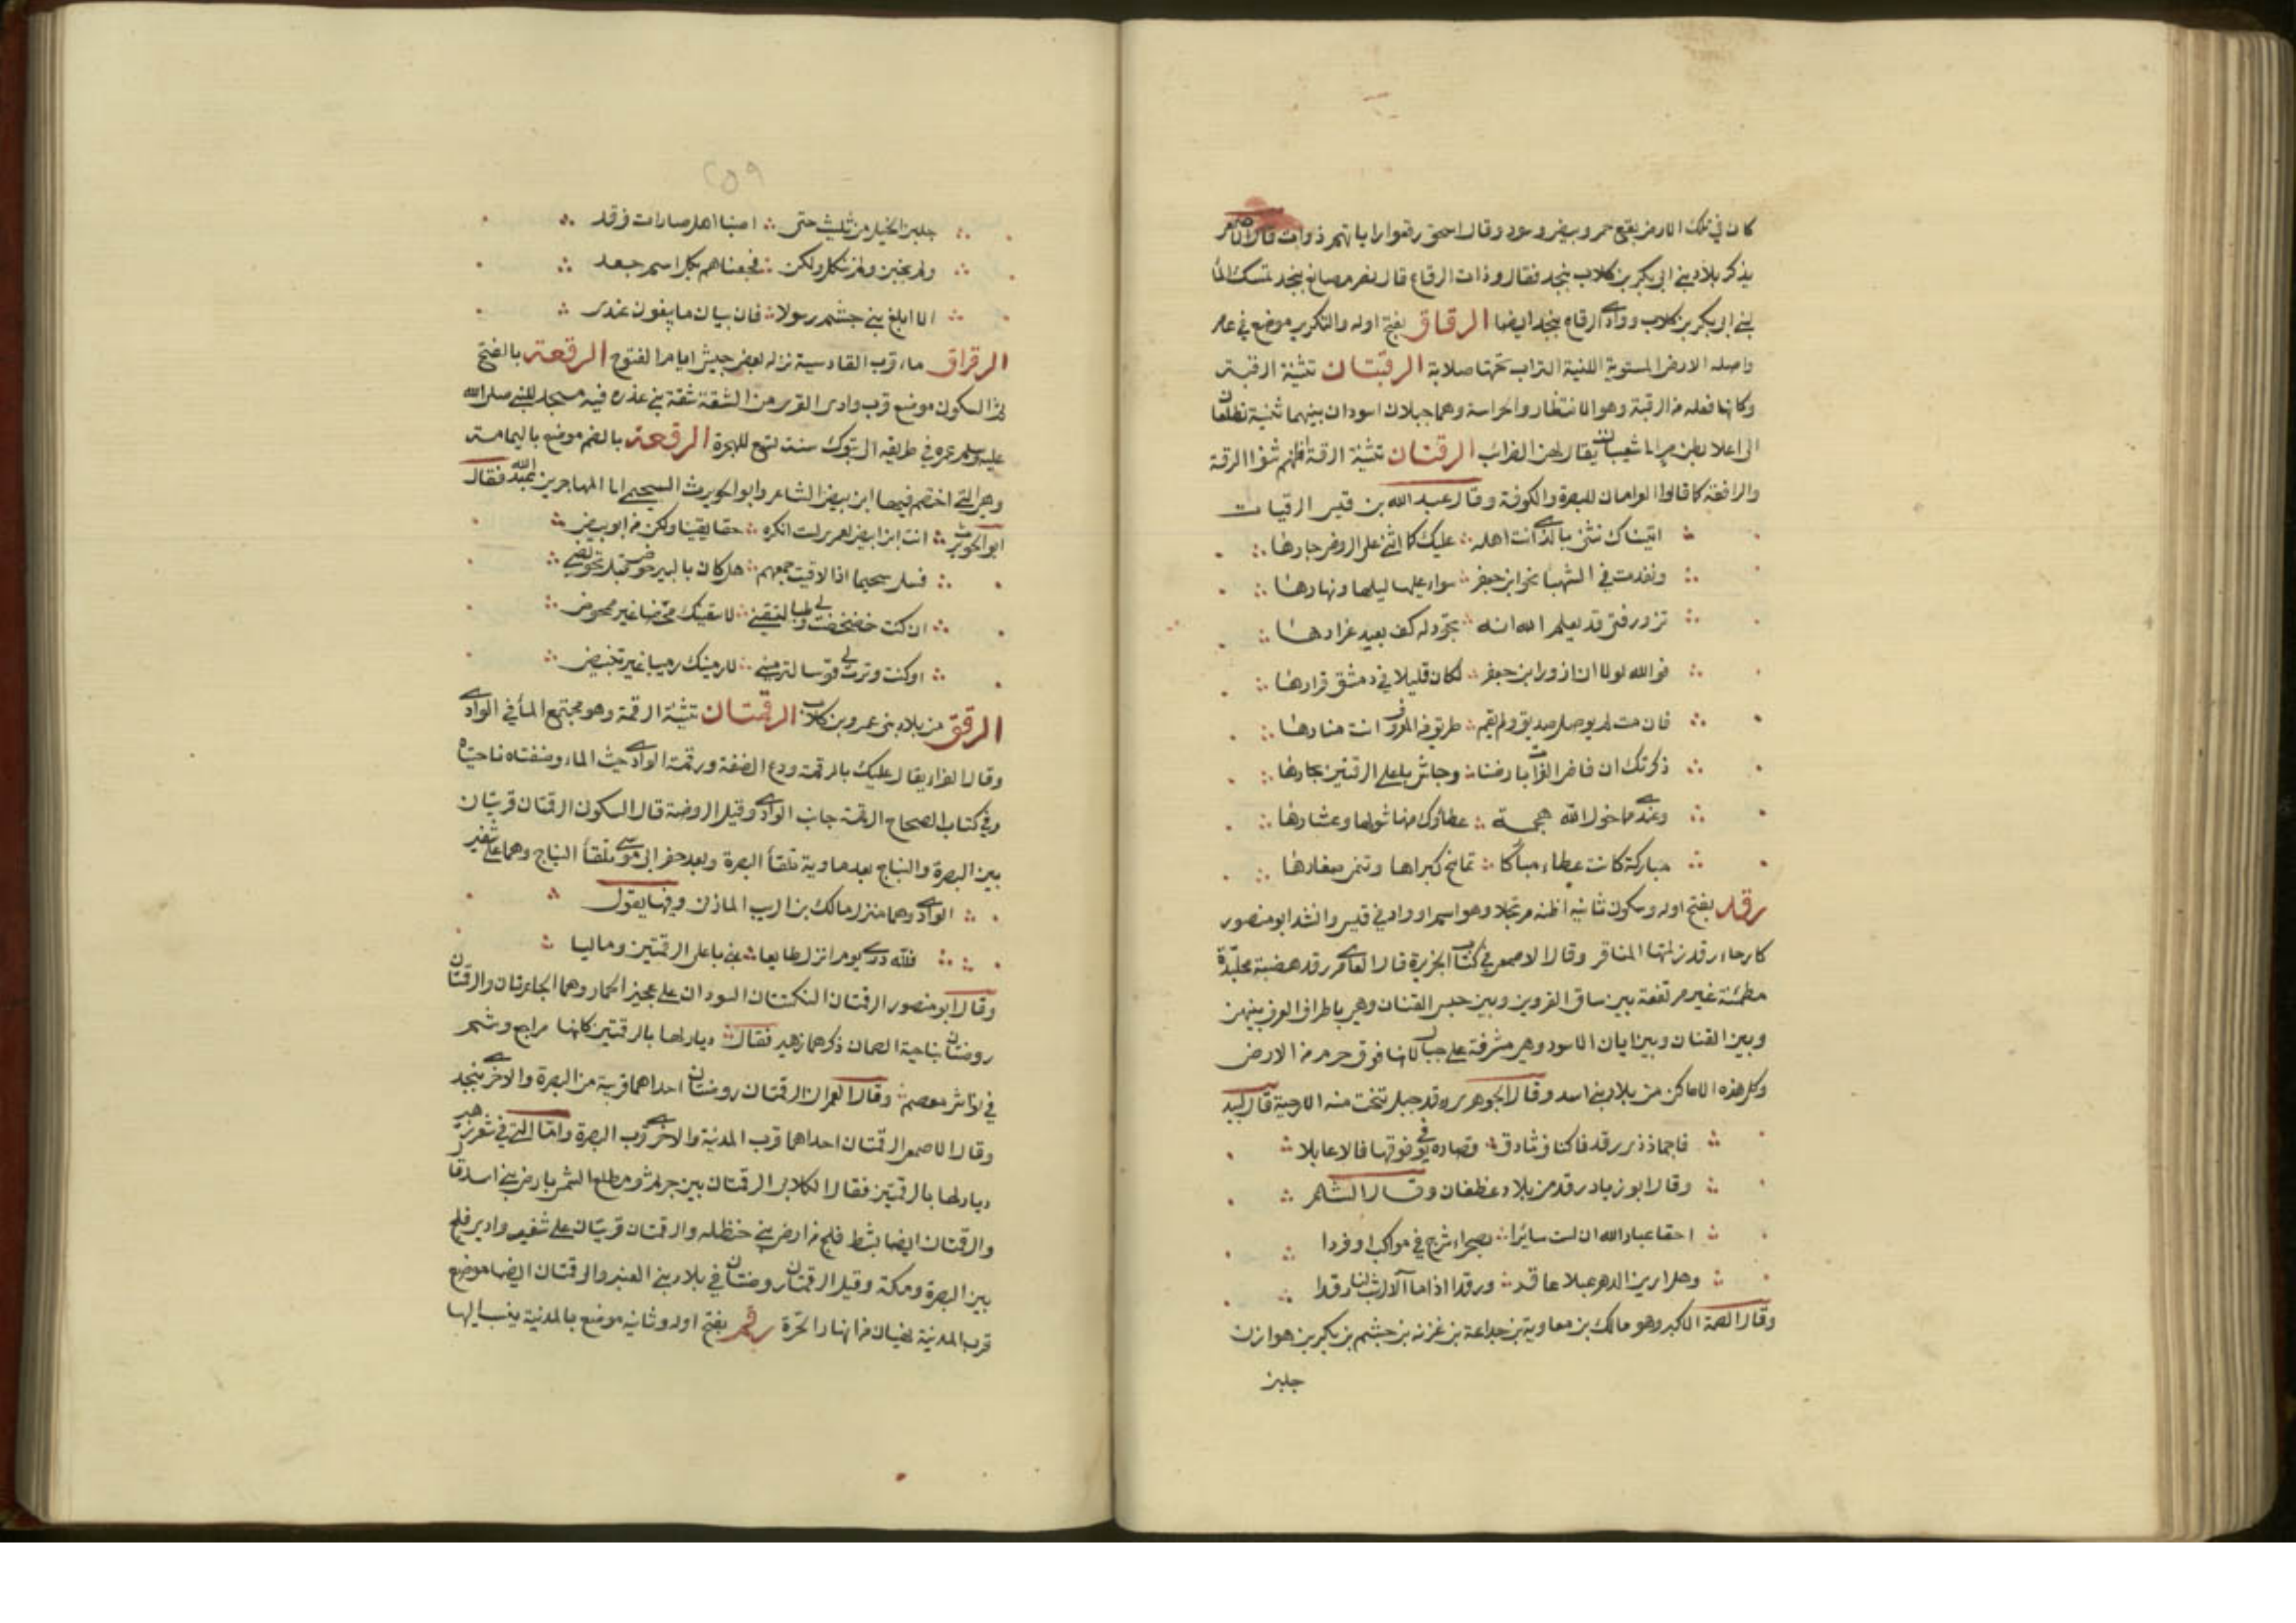 كان في تلك الارض بقع حمر وبيض وسود وقال اسحق رقعوا راياتهم ذوات قال الاصمعى
يذكر بلاد بني ابي بكر بن كلاب بنجد فقال وذات الرقاع قال نصر مصانع بنجد تمسك الماء
لبني ابي بكر بن كلاب ووادي الرقاع بنجد ايضا الرقاق بفتح اوله والتكرير موضع في عامر
واصله الارض المستوية اللينة التراب تحتها صلابة الرقبتان تثنية الرقبة
وكانها فعله من الرقبة وهو الانتظار والحراسة وهما جبلان اسودان بينهما ثنية تطلعان
الى اعلا بطن مر الى شعيبات يقال لهن الضرائب الرقتان تثنية الرقة اظنهم ثنوا الرقة
والرافقة كما قالوا العراقان للبصرة والكوفة وقال عبد الله بن قيس الرقيات
اتيناك نثني بالذي انت اهله عليك كما اثنى على الروض جارها
وتقدمت في الشهبا نحو ابن جعفر سواء عليها ليلها ونهارها
تزور فتى قد يعلم الله انه تجود له كف بعيد غرارها
فوالله لولا ان ازور ابن جعفر لكان قليلا في دمشق قرارها
فان مت لم يوصل صديق ولم يقم طريق من المعروف انت منارها
ذكرتك ان فاض الفرات بارضنا وجاش باعلى الرقتين بحارها
وعندي مما خول الله هجمة عطاؤك منها شولها وعشارها
مباركة كانت عطاء مبارك تمانح كبراها وتنمى صغارها
رقد بفتح اوله وسكون ثانيه اظنه مرتجلا وهو اسم او واد في قيس وانشد ابو منصور
كارحاء رقد زلمتها المناقر وقال الاصمعي في كتاب الجزيرة قال العامري رقد هضبة مجلندة
مطمئنة غير مرتفعة بين ساق الفروين وبين حبس القنان وهي باطراف العرف بينهن
وبين القنان وبين ابان الاسود وهي مشرفة على جبال لانها فوق حزم من الارض
وكل هذه الاماكن من بلاد بني اسد وقال الجوهرى رقد جبل تنحت منه الارحية قال لبيد
فاجماد ذى رقد فاكناف ثادق فصارة يوفي فوقها فالاعابلا
وقال ابو زياد رقد من بلاد غطفان وقال الشاعر
احقا عباد الله ان لست سائرا بصحراء شرج في مواكب او فردا
وهل ارين الدهر عبلاء عاقر ورقدا اذا ما الآل شب لنا رقدا
وقال الصمة الاكبر وهو مالك بن معاوية بن جداعة بن غزية بن جشم بن بكر بن هوازن
جلبن
٢٥٩
جلبن الخيل من تثليث حتى اصبنا اهل صارات فرقد
ولم يجبن ولم ننكل ولكن فجعناهم بكل اسم جعد
الا ابلغ بني جشم رسولا فان بيان ما يبغون عندى
الرقراق ماء قرب القادسية نزله بعض جيش ايام الفتوح الرقعة بالفتح
ثم السكون موضع قرب وادى القرى من الشقة شقة بني عذرة فيه مسجد للنبي صلى الله
عليه وسلم عمره في طريقه الى تبوك سنة تسع للهجرة الرقعة بالضم موضع باليمامة
وهي التي اختصم فيها ابن بيض الشاعر وابو الحويرث السحيمي الى المهاجر بن عبد الله فقال
ابو الحويرث انت ابن ابيض لعمرى لست انكره حقا يقينا ولكن من ابو بيض
فسل سحيما اذا لاقيت جمعهم هل كان بالبير حوض قبل تحويضي
ان كنت خضخضت لي وطبا لتسقيني لاسقينك محضا غير ممحوض
او كنت وترت لي قوسا لترميني لارمينك رميا غير تنبيض
الرقق من بلاد بنى عمرو بن كلاب الرقمتان تثنية الرقمة وهو مجتمع الماء في الوادي
وقال الفرا يقال عليك بالرقمة ودع الضفة ورقمة الوادي حيث الماء وضفتاه ناحيتاه
وفي كتاب الصحاح الرقمة جانب الوادي وقيل الروضة قال السكون الرقمتان قريتان
بين البصرة والنباج بعد ماوية تلقاء البصرة وبعد حفر ابي موسى تلقاء النباج وهما على شفير
الوادي وهما منزل مالك بن الريب المازني وفيها يقول
فلله درى يوم اترك طايعا بني باعلى الرقمتين وماليا
وقال ابو منصور الرقمتان النكتتان السودان على عجيز الحمار وهما الجاعرتان والرقمتان
روضتان بناحية الصمان ذكرهما زهير فقال ديار لها بالرقمتين كانها مراجع وشم
في نواشر معصم وقال العمراني الرقمتان روضتان احداهما قريبة من البصرة والاخرى بنجد
وقال الاصمعي الرقمتان احداهما قرب المدينة والاخرى قرب البصرة واما التي في شعر زهير
ديار لها بالرقمتين فقال الكلابي الرقمتان بين جرثم ومطلع الشمس بارض بني اسد قال
والرقمتان ايضا بشط فلج من ارض بني حنظلة والرقمتان قريتان على شفير وادي فلج
بين البصرة ومكة وقيل الرقمتان روضتان في بلاد بني العنبر والرقمتان ايضا موضع
قرب المدينة نهيان من انهار الحرة رقم بفتح اوله وثانيه موضع بالمدينة ينسب اليها